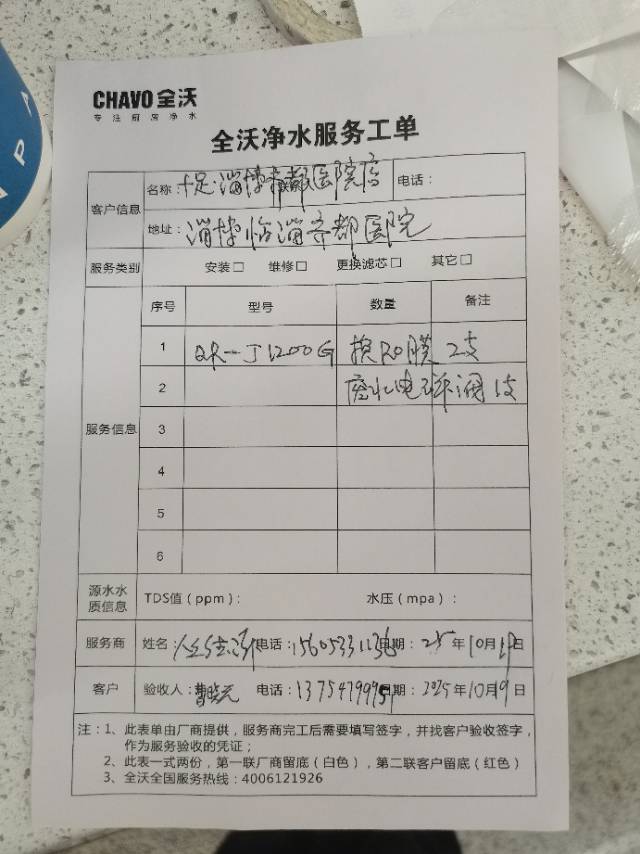 CHAVO 全沃
专注厨房净水
全沃净水服务工单
客户信息
名称：十足·淄博齐都医院店 电话：
地址：淄博临淄齐都医院
服务类别 安装□ 维修□ 更换滤芯□ 其它□
服务信息
序号 型号 数量 备注
1 QR-J1200G 换RO膜 2支
2 废水电磁阀 1支
3
4
5
6
源水水质信息 TDS值（ppm）： 水压（mpa）：
服务商 姓名： 电话：15605331136 日期：25年10月19日
客户 验收人：曹晓元 电话： 日期：2025年10月19日
注：1、此表单由厂商提供，服务商完工后需要填写签字，并找客户验收签字，
作为服务验收的凭证；
2、此表一式两份，第一联厂商留底（白色），第二联客户留底（红色）
3、全沃全国服务热线：4006121926